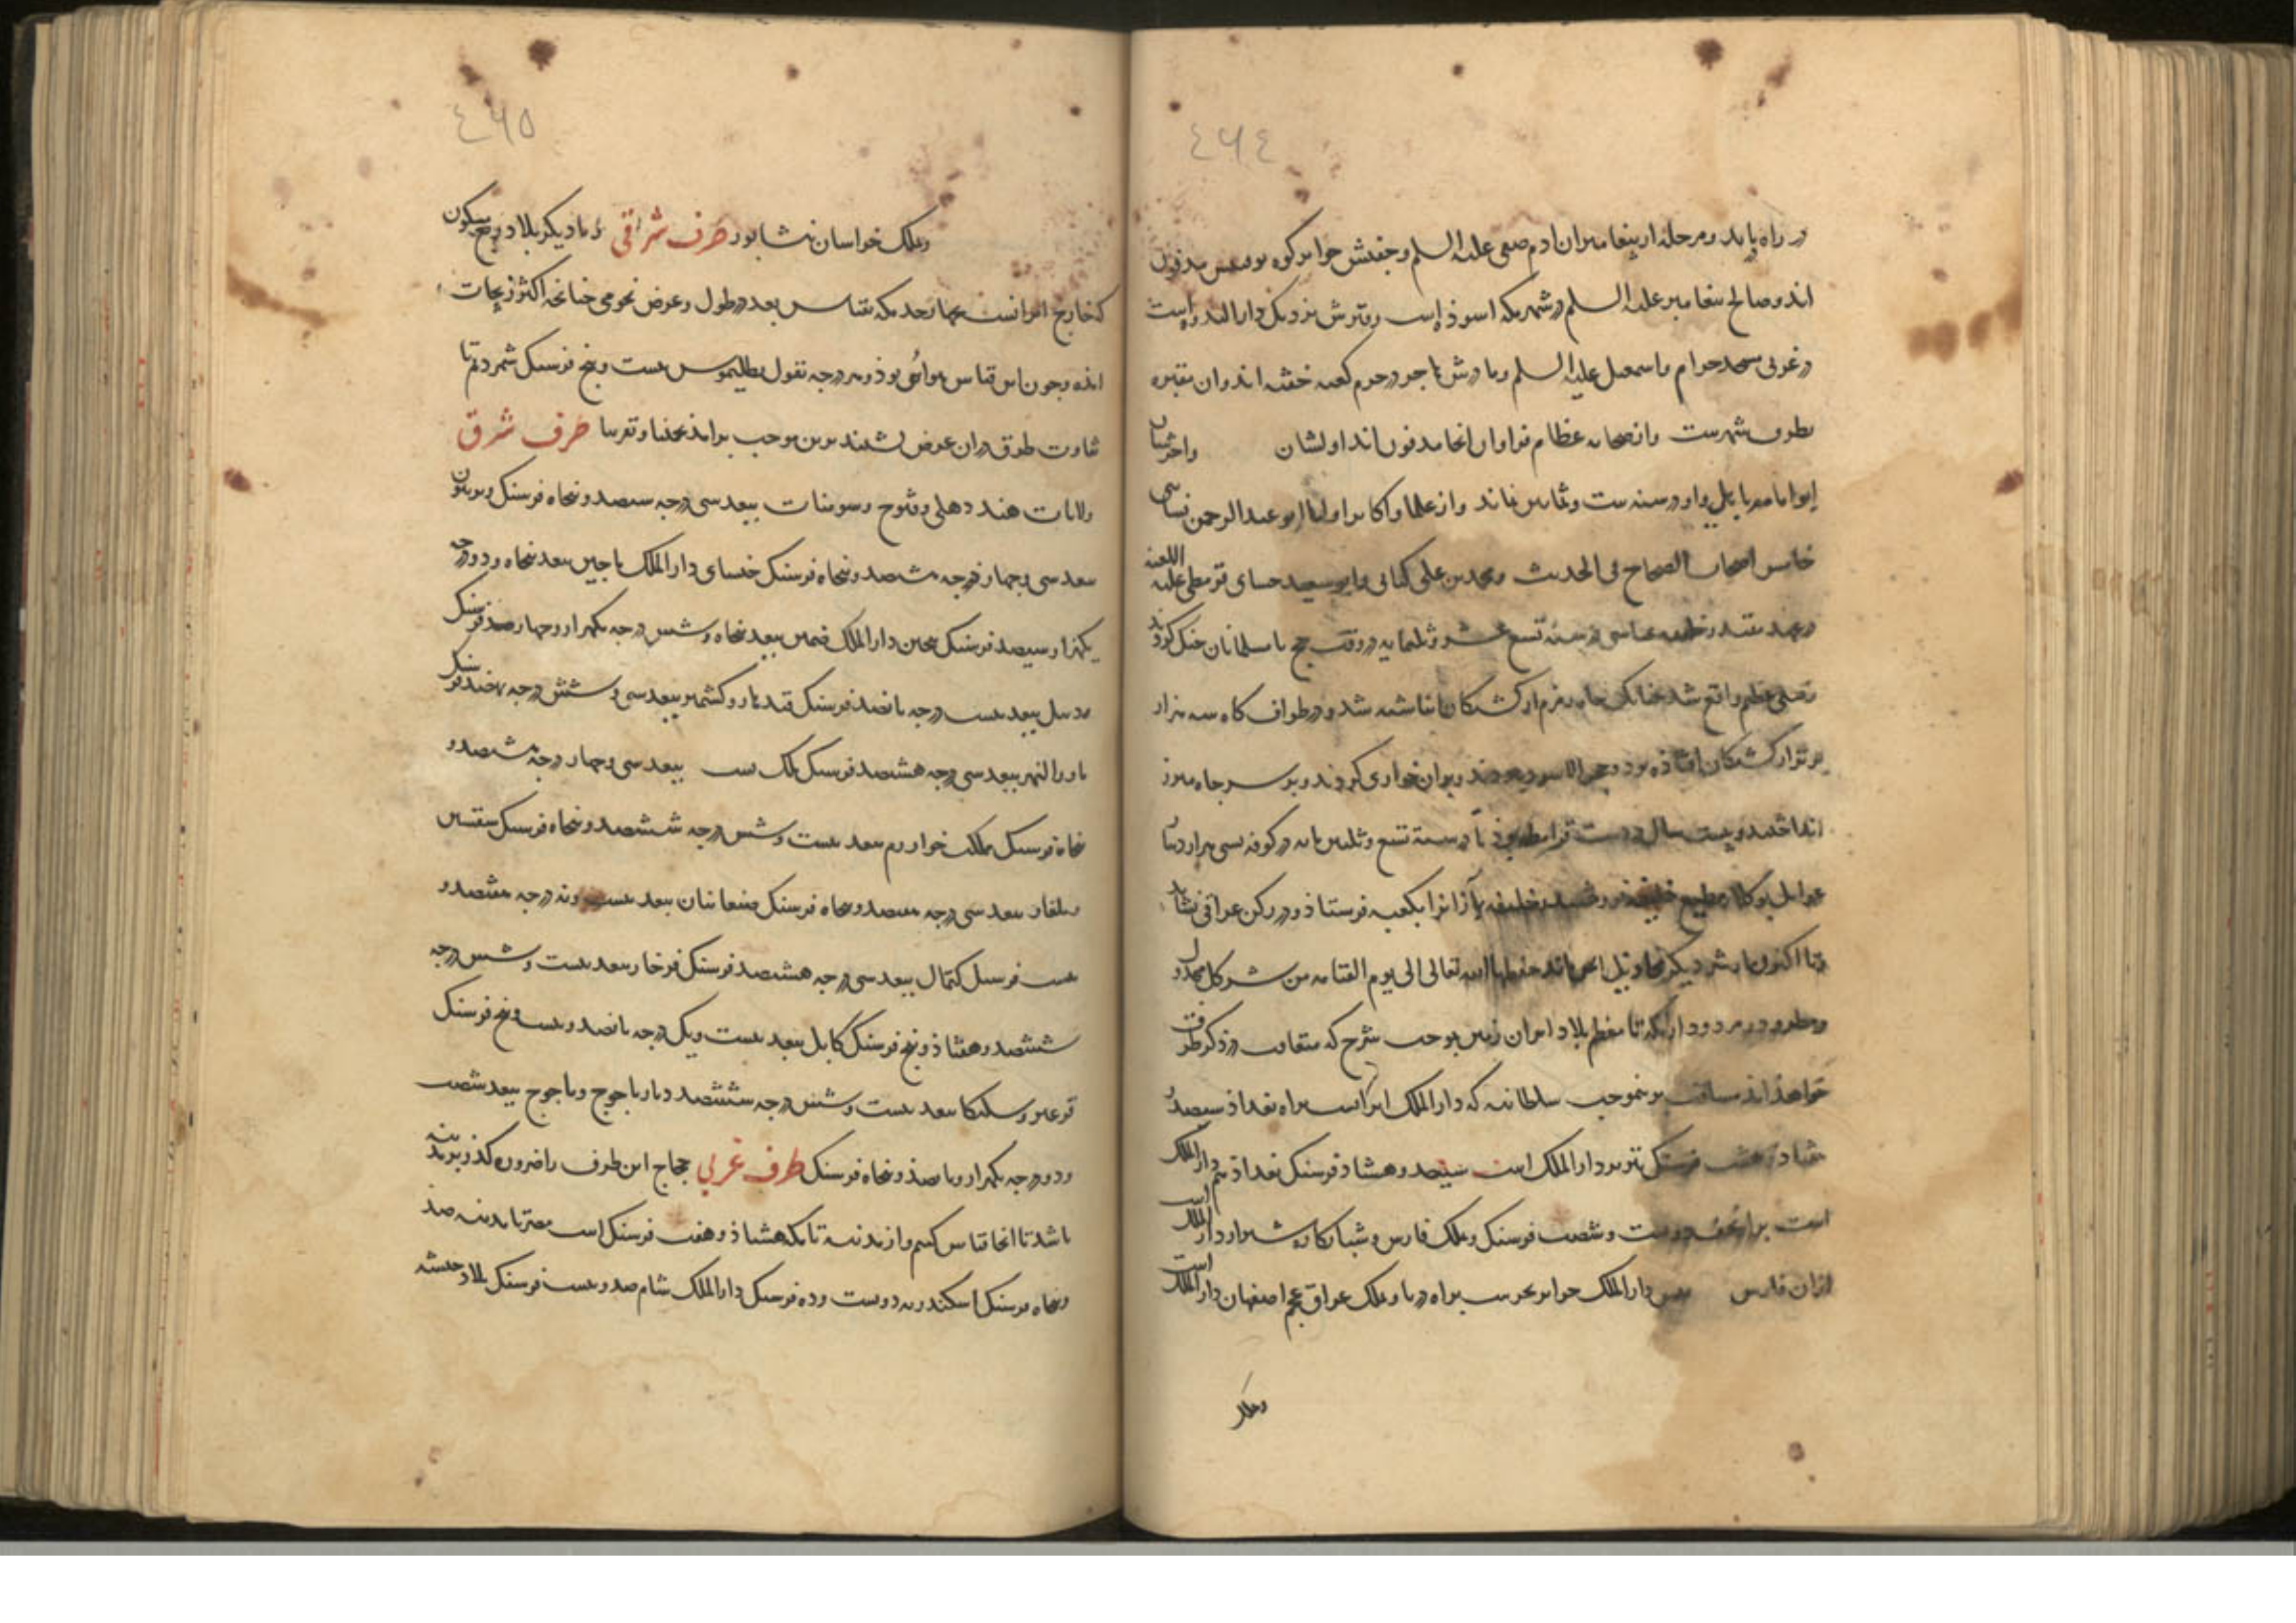 ٤٦٤
در راه یابد و مرحله از پیغامبران ادم صفی علیه السلم و جفتش حوا بر کوه بوقبیس مدفون
اند و صالح پیغامبر علیه السلم در شهر مکه اسوذ است و قبرش نزدیک دار الندوه است
در غربی مسجد حرام و اسمعیل علیه السلم و مادرش هاجر در حرم کعبه خفته اند و ان مقبره
بطرف شهرست و از صحابه عظام فراوان انجا مدفون اند اولشان واخرشان
ابو امامه باهلی و او در سنه ست و ثمانین نماند و از علما و اکابر و اولیا ابو عبد الرحمن نسائی
خامس اصحاب الصحاح فی الحدیث و محمد بن علی کتانی و ابو سعید جسای قرمطی علیه اللعنه
در عهد مقتدر خلیفه عباسی در سنه تسع عشر و ثلثمایه در وقت حج با مسلمانان جنک کردند
قتلی عظیم واقع شد چنانک چاه زمزم از کشتکان انباشته شد و در طواف کاه سه هزار
کشتکان افتاذه بود و حجر الاسود ببردند و بر ان خواری کردند و بر سر چاه مبرز
انداختند و بیست سال در دست قرامطه بوذ تا در سنة تسع و ثلثین مایه در کوفه بسی هزار دینار
بوکلاء مطیع خلیفه فروختند و خلیفه آنرا بکعبه فرستاذ و در رکن عراقی نشاند
و تا اکنون بار دیگر حفظها الله تعالی الی یوم القیامه من شر کل
که تا معظم بلاد ایران زمین بموجب شرح که متعاقب در ذکر طرق
خواهذ امذ مسافت برینموجب سلطانیه که دار الملک ایرانست براه بغداذ سیصد و
هشتاد و هشت فرسنک تبریز دار الملک است سیصد و هشتاذ فرسنک بغداذ هم دار الملک
است براه نجف دویست و شصت فرسنک و ملک فارس و شبانکاره شیراز دار الملک است
از ان فارس دار الملک جزایر بحرست براه دریا و ملک عراق عجم اصفهان دار الملک است
و ملک
٤٦٥
و ملک خراسان نشابور طرف شراقی و با دیکر بلاد ربع مسکون
که خارج ایرانست بهمان حد مکه بقیاس بعد در طول و عرض نجومی چنانچه اکثر زیجات
اذه و چون این قیاس هوائی بوذ و هر درجه بقول بطلیموس بیست و پنج فرسنک شمردیم تا
تفاوت طرق در ان عوض نشیند برین موجب برامذ تخمینا و تقریبا طرف شرق
ولایات هند دهلی و قنوج و سومنات ببعد سی درجه سیصد و پنجاه فرسنک
ببعد سی و چهار درجه هشتصد و پنجاه فرسنک خنسای دار الملک ماچین ببعد پنجاه و دو درجه
یکهزار و سیصد فرسنک دار الملک چین ببعد پنجاه و شش درجه یکهزار و چهارصد فرسنک
ببعد بیست درجه پانصد فرسنک قندهار و کشمیر ببعد سی و شش درجه نهصد فرسنک
ماورا النهر ببعد سی درجه هشتصد فرسنک ملک تبت ببعد سی و چهار درجه هشتصد و
پنجاه فرسنک ملک خوارزم ببعد بیست و شش درجه ششصد و پنجاه فرسنک سقسین
و بلغار ببعد سی درجه هفتصد و پنجاه فرسنک صغانیان ببعد بیست و نه درجه هفتصد و
بیست فرسنک کیماک ببعد سی درجه هشتصد فرسنک فرخار ببعد بیست و شش درجه
ششصد و هفتاذ و پنج فرسنک کابل ببعد بیست و یک درجه پانصد و بیست و پنج فرسنک
ببعد بیست و شش درجه ششصد دیار یاجوج و ماجوج ببعد شصت
و دو درجه یکهزار و پانصذ و پنجاه فرسنک طرف غربی حجاج این طرف را ضرورة کذر بر مدینه
باشد تا انجا قیاس کنیم و از مدینه تا مکه هشتاذ و هفت فرسنک است مصر تا مدینه صذ
و پنجاه فرسنک اسکندریه دویست و ده فرسنک دار الملک شام صد و بیست فرسنک بلاد حبشه